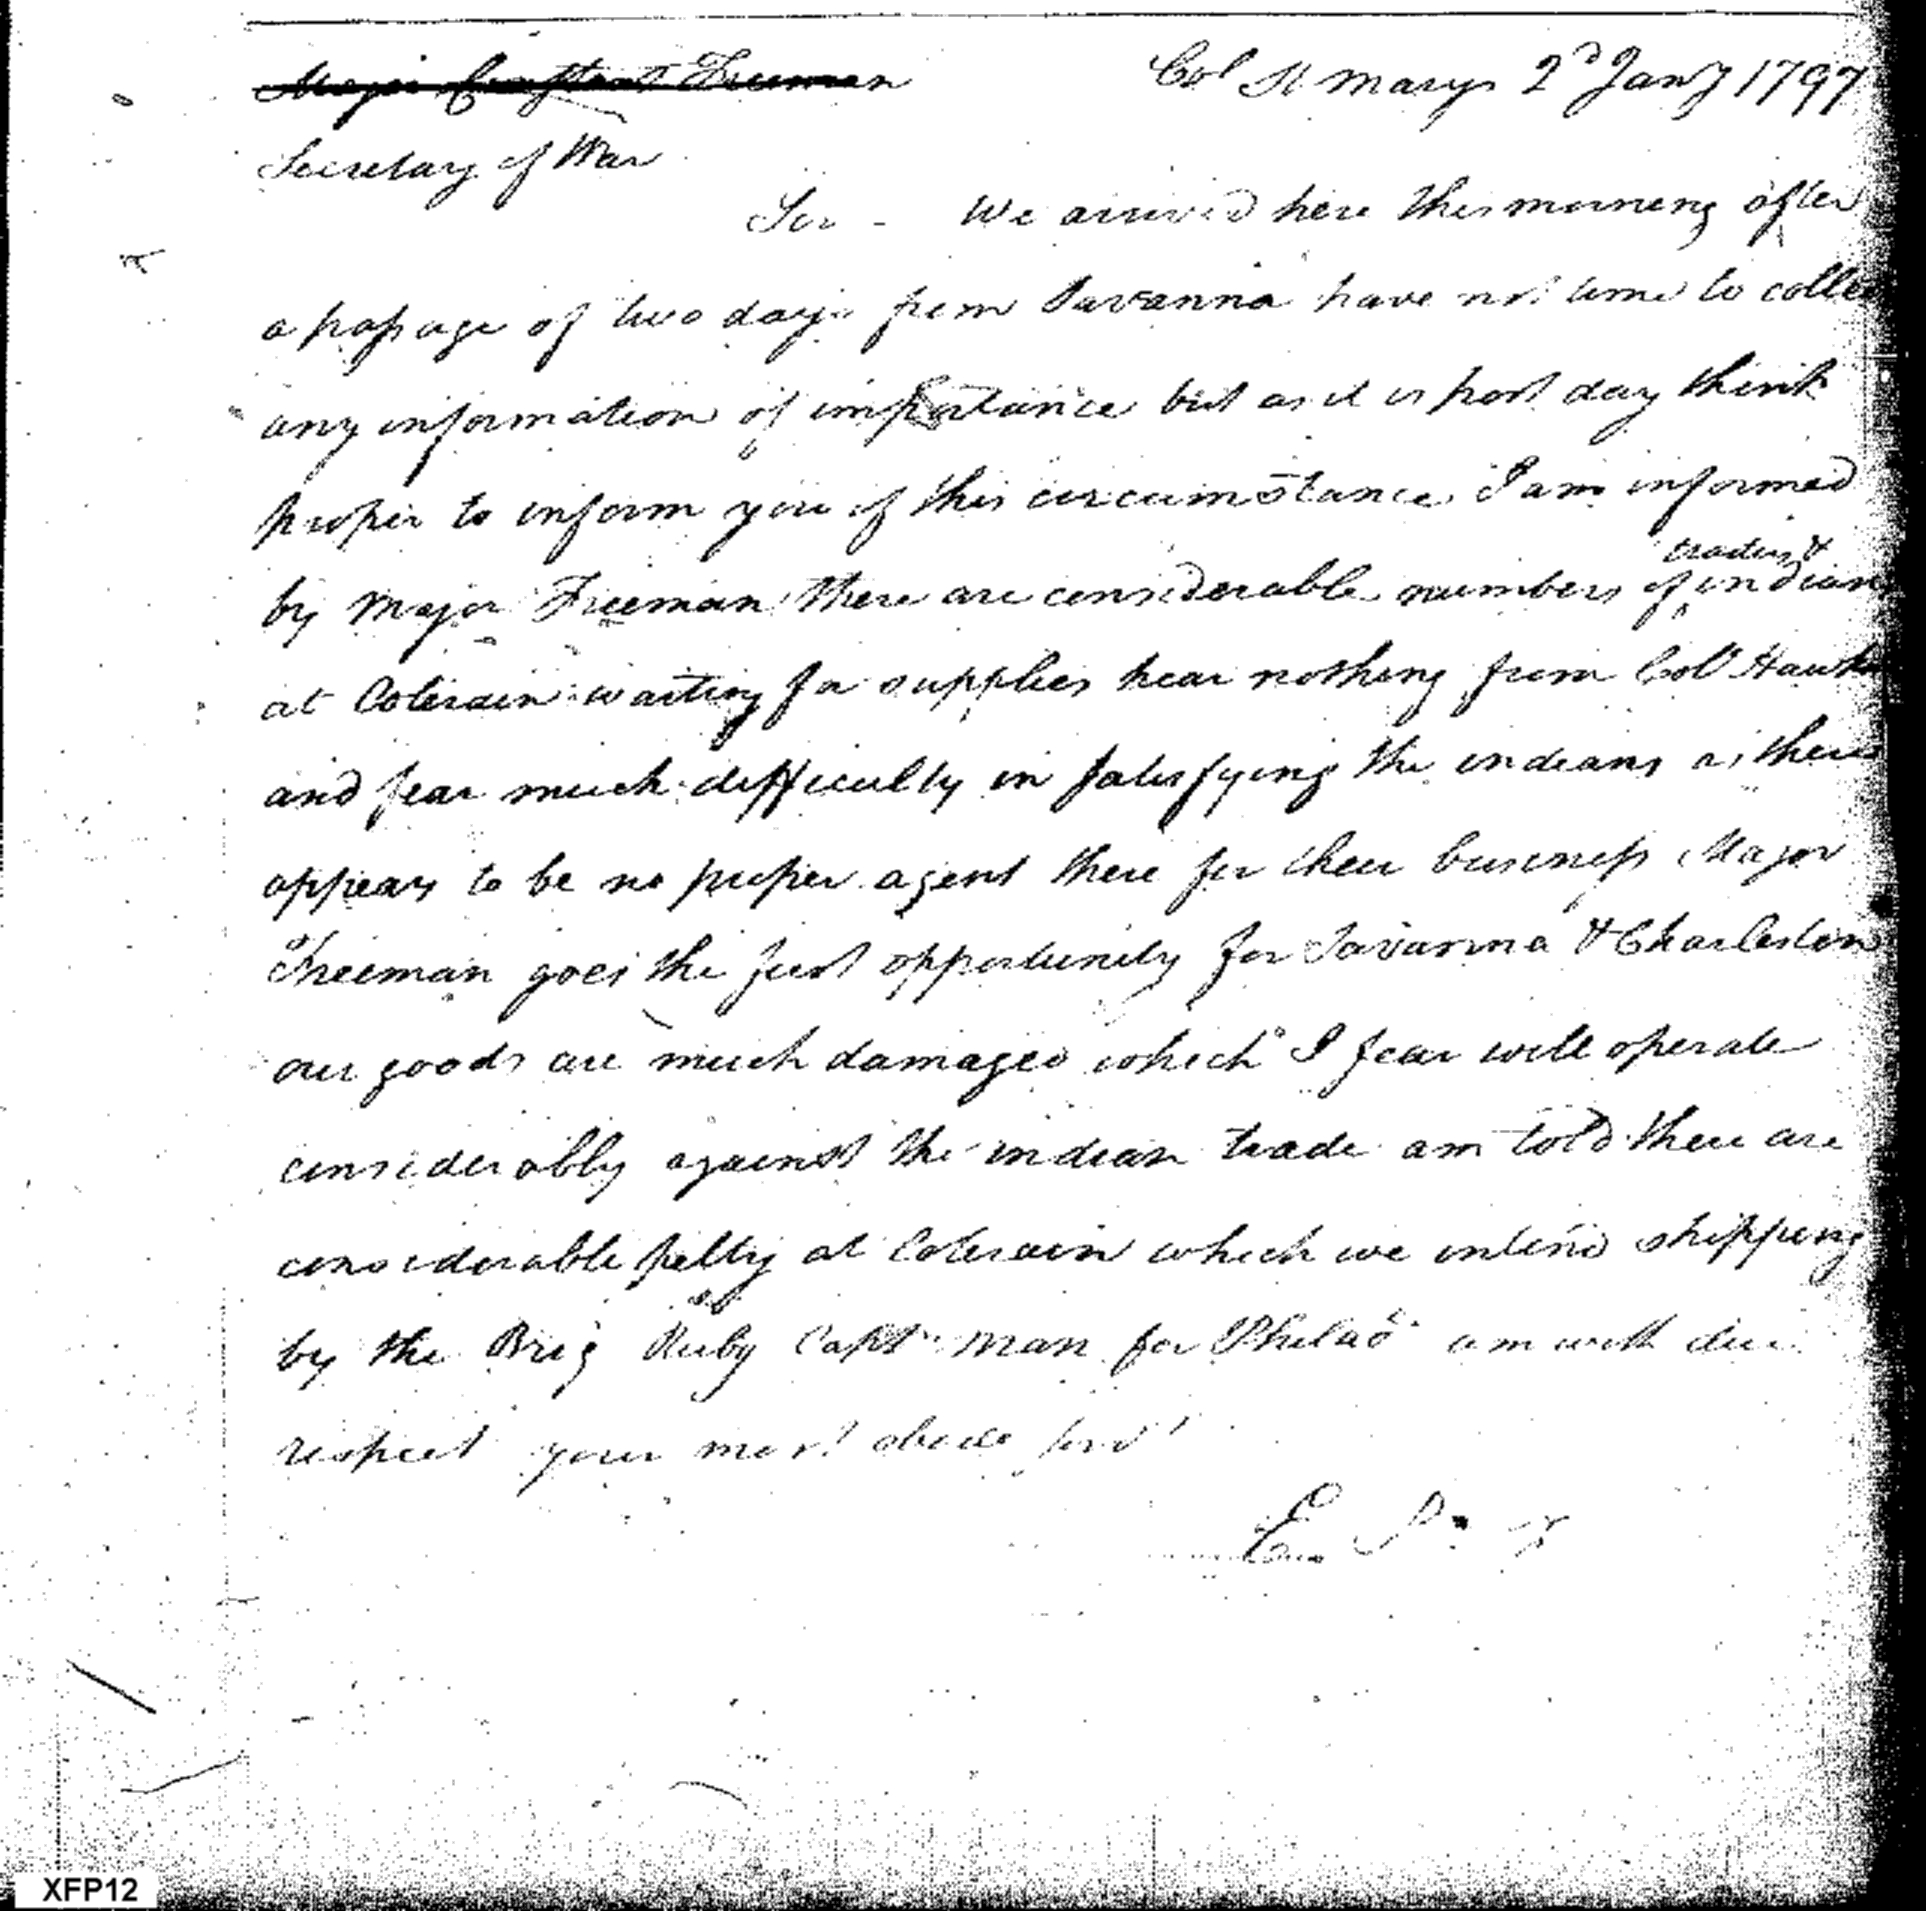 ~~Major Constant Freeman~~ Col St Marys 2d Jany 1797
Secretary of War
Sir - We arrived here this morning after
a passage of two days from Savanna have not time to collec
any information of importance but as it is post day think
proper to inform you of this circumstance I am informed
traders &
by Major Freeman there are considerable numbers of indian
at Colerain waiting for supplies hear nothing from Col Hawk
and fear much difficulty in satisfying the indians as there
appears to be no proper agent there for their business Major
Freeman goes the first opportunity for Savanna & Charleston
our goods are much damaged which I fear will operate
considerably against the indian trade am told there are
considerable peltry at Colerain which we intend shipping
by the Brig Ruby Capt Man for Philad am with due
respect your most obed servt
E P
XFP12